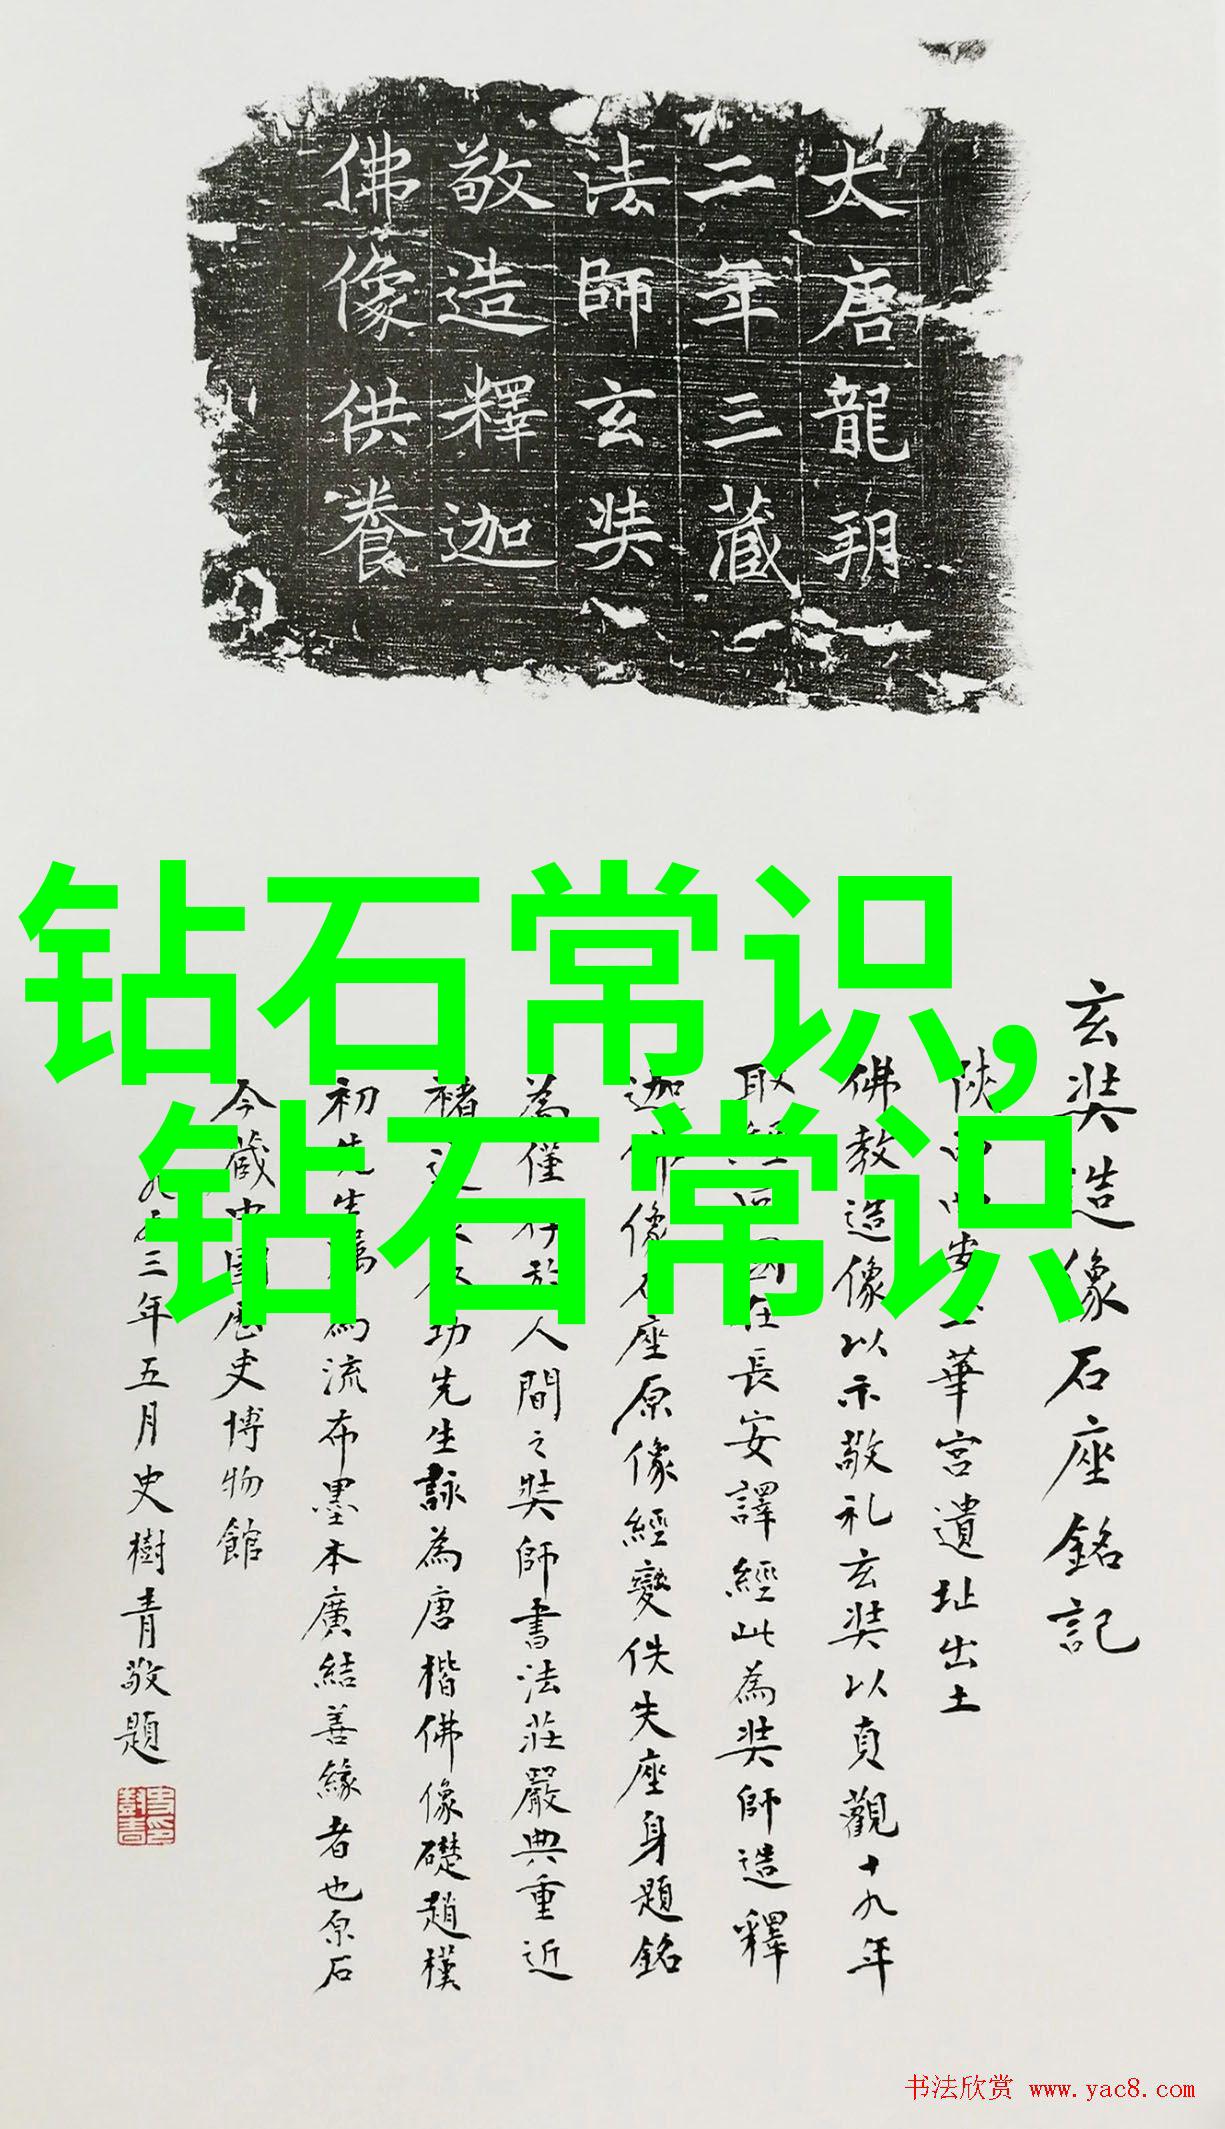 大唐龍朔
二年三藏
法師玄奘
敬造釋迦
佛像供養
钻石常识,
钻石常识
玄奘造像石座銘記
陝西 華宮遺址出土
佛教造像以示敬礼玄奘以貞觀十九年
取經 在長安譯經此為奘師造釋
迦 像石座原像經變佚失座身題銘
為僅存於人間之奘師書法莊嚴典重近
褚 功先生詠為唐楷佛像礎趙樸
初先生屬為流布墨本廣結善緣者也原石
今藏中國歷史博物館
三年五月史樹青敬題
书法欣赏 www.yac8.com